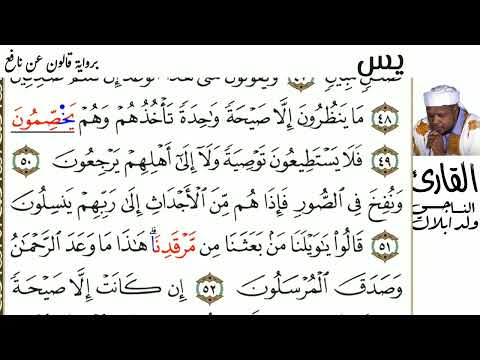 برواية قالون عن نافع
يس
مَا يَنظُرُونَ إِلَّا صَيْحَةً وَٰحِدَةً تَأْخُذُهُمْ وَهُمْ يَخْصِّمُونَ ٤٨
فَلَا يَسْتَطِيعُونَ تَوْصِيَةً وَلَا إِلَىٰ أَهْلِهِمْ يَرْجِعُونَ ٤٩ ٥٠
وَنُفِخَ فِى الصُّورِ فَإِذَا هُم مِّنَ الْأَجْدَاثِ إِلَىٰ رَبِّهِمْ يَنسِلُونَ
قَالُوا۟ يَٰوَيْلَنَا مَنۢ بَعَثَنَا مِن مَّرْقَدِنَا ۗ هَٰذَا مَا وَعَدَ الرَّحْمَٰنُ ٥١
وَصَدَقَ الْمُرْسَلُونَ ٥٢ إِن كَانَتْ إِلَّا صَيْحَةً
القارئ
الناجي
ولد ابلال